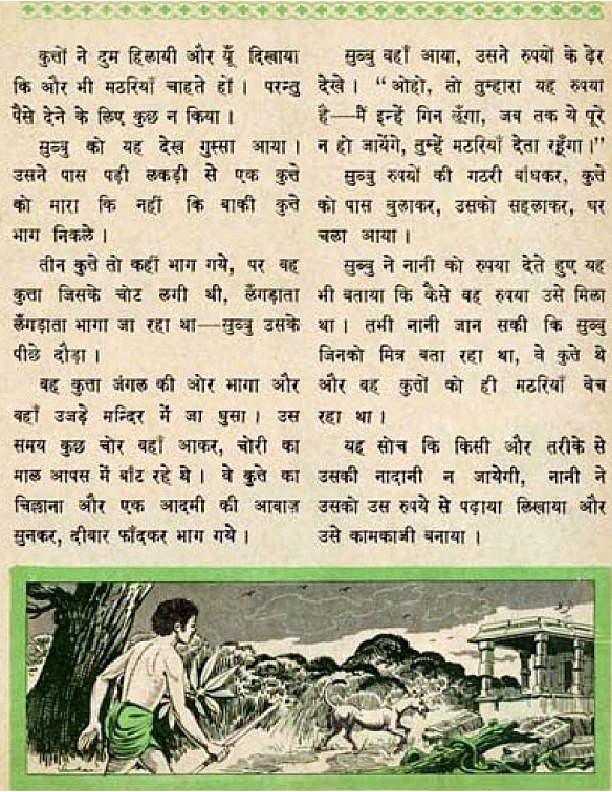 कुत्तों ने दुम हिलायी और यूँ दिखाया
कि और भी मठरियाँ चाहते हों । परन्तु
पैसे देने के लिए कुछ न किया ।
सुब्बु को यह देख गुस्सा आया ।
उसने पास पड़ी लकड़ी से एक कुत्ते
को मारा कि नहीं कि बाकी कुत्ते
भाग निकले ।
तीन कुत्ते तो कहीं भाग गये, पर वह
कुत्ता जिसके चोट लगी थी, लँगड़ाता
लँगड़ाता भागा जा रहा था—सुब्बु उसके
पीछे दौड़ा ।
वह कुत्ता जंगल की ओर भागा और
वहाँ उजड़े मन्दिर में जा घुसा । उस
समय कुछ चोर वहाँ आकर, चोरी का
माल आपस में बाँट रहे थे । वे कुत्ते का
चिल्लाना और एक आदमी की आवाज़
सुनकर, दीवार फाँदकर भाग गये ।
सुब्बु वहाँ आया, उसने रुपयों के ढेर
देखे । “ओहो, तो तुम्हारा यह रुपया
है—मैं इन्हें गिन लूँगा, जब तक ये पूरे
न हो जायेंगे, तुम्हें मठरियाँ देता रहूँगा ।”
सुब्बु रुपयों की गठरी बाँधकर, कुत्ते
को पास बुलाकर, उसको सहलाकर, घर
चला आया ।
सुब्बु ने नानी को रुपया देते हुए यह
भी बताया कि कैसे वह रुपया उसे मिला
था । तभी नानी जान सकी कि सुब्बु
जिनको मित्र बता रहा था, वे कुत्ते थे
और वह कुत्तों को ही मठरियाँ बेच
रहा था ।
यह सोच कि किसी और तरीके से
उसकी नादानी न जायेगी, नानी ने
उसको उस रुपये से पढ़ाया लिखाया और
उसे कामकाजी बनाया ।